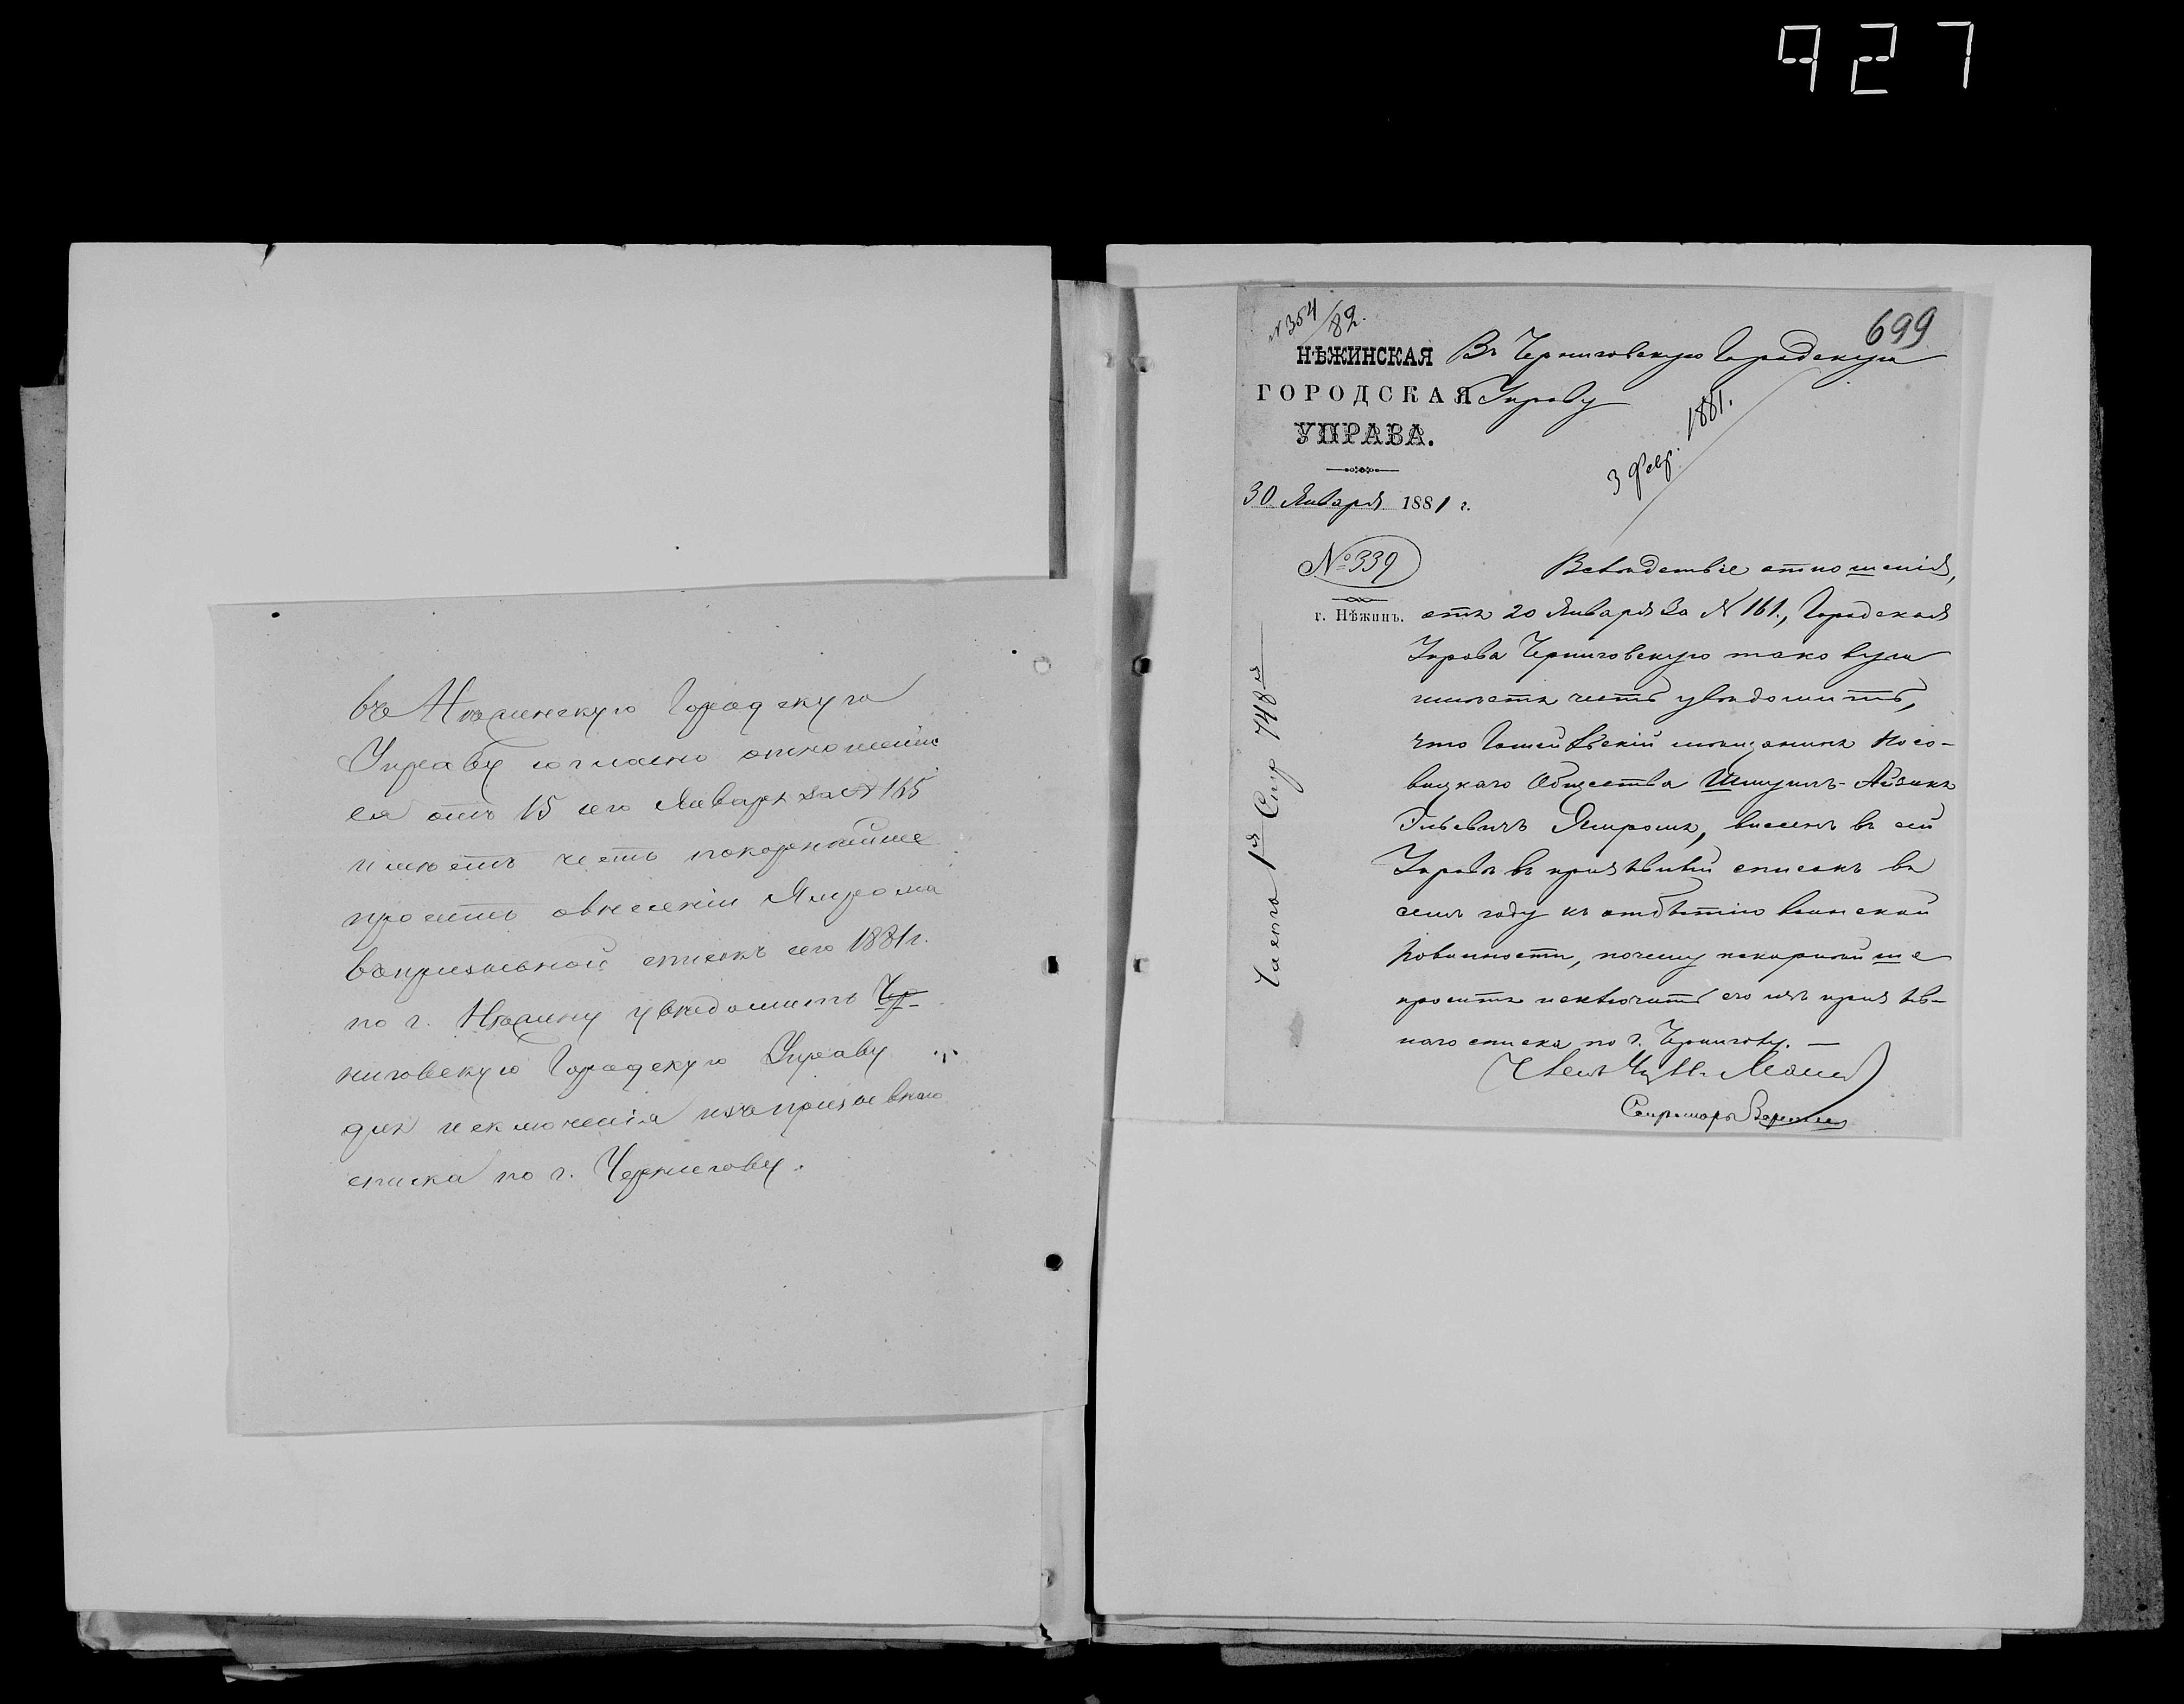 927
въ Нѣжинскую Городскую
Управу согласно отношенію
ея отъ 15 сего Января за № 165
имѣетъ честь покорнѣйше
просить о внесеніи Ямрома
въ призывной списокъ сего 1881 г.
по г. Нѣжину увѣдомить Чер-
ниговскую Городскую Управу
для исключенія изъ призывнаго
списка по г. Чернигову.
699
№ 354/82.
НѢЖИНСКАЯ
ГОРОДСКАЯ
УПРАВА.
Въ Черниговскую Городскую
Управу
3 Февр. 1881.
30 Января 1881 г.
№ 339
г. Нѣжинъ.
Вслѣдствіе отношенія,
отъ 20 Января за № 161., Городская
Управа Черниговскую таковую
имѣетъ честь увѣдомить,
что мѣщанинъ Носо-
вицкаго Общества Шмуилъ-Айзикъ
Ямромъ, внесенъ въ сей
Управѣ въ призывный списокъ въ
семъ году къ отбытію воинской
повинности, почему покорнѣйше
проситъ исключить его изъ призыв-
наго списка по г. Чернигову. —
Членъ
Секретарь
748